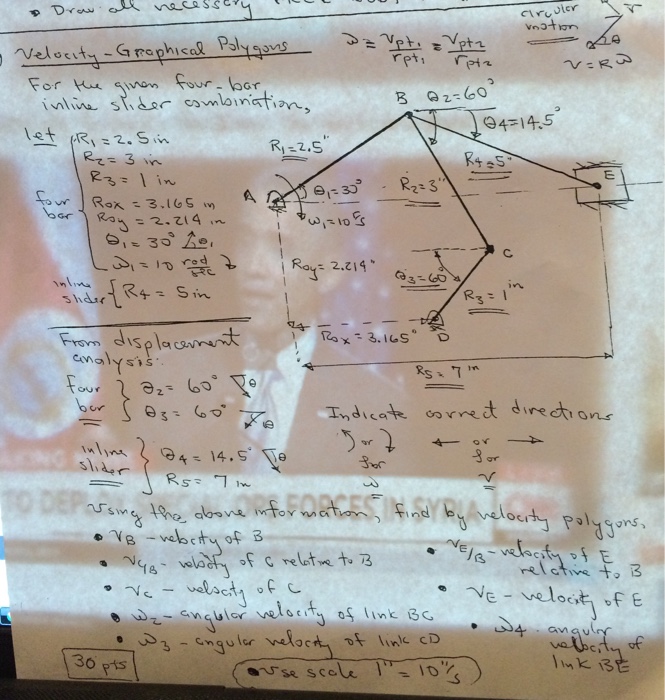 • Draw all necessary
Velocity - Graphical Polygons
ω = Vpt1 / rpt1 = Vpt2 / rpt2
circular motion
V
θ
V = R ω
For the given four-bar
inline slider combination,
let
four bar
R1 = 2.5 in
R2 = 3 in
R3 = 1 in
Rox = 3.165 in
Roy = 2.214 in
θ1 = 30° θ1
ω1 = 10 rad/sec
inline slider { R4 = 5 in
A
B
C
D
E
R1 = 2.5"
θ2 = 60°
θ4 = 14.5°
R4 = 5"
θ1 = 30°
R2 = 3"
ω1 = 10 r/s
Roy = 2.214"
θ3 = 60°
R3 = 1 in
Rox = 3.165"
R5 = 7 in
From displacement
analysis:
four bar } θ2 = 60° θ
θ3 = 60° θ
inline slider } θ4 = 14.5° θ
R5 = 7 in
Indicate correct directions
or
for
ω
← or →
for
V
Using the above information, find by velocity polygons,
• VB - velocity of B
• VC/B - velocity of C relative to B
• VC - velocity of C
• ω2 - angular velocity of link BC
• ω3 - angular velocity of link CD
• VE/B - velocity of E
relative to B
• VE - velocity of E
• ω4 - angular
velocity of
link BE
30 pts
• Use scale 1" = 10"/s
FORCES IN SYRIA